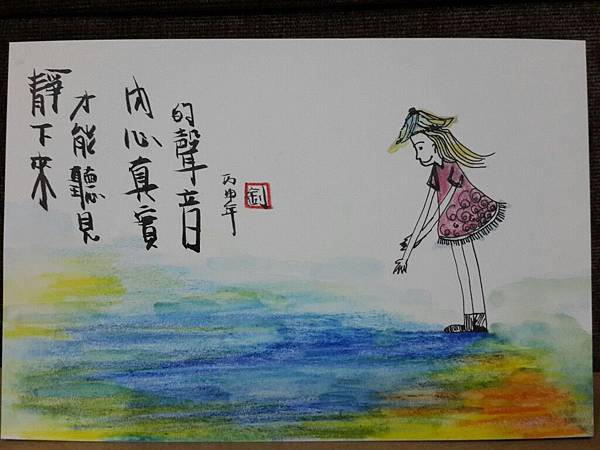 靜下來
才能聽見
內心真實
的聲音
丙申年
劉